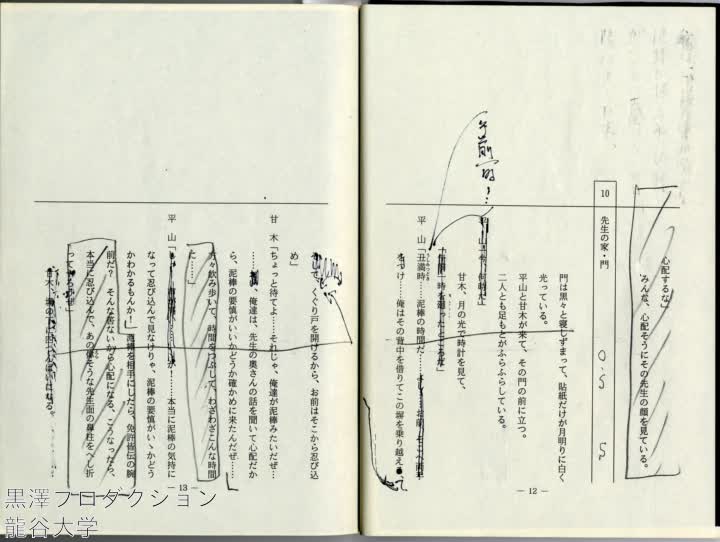 心配するな」
みんな、心配そうにその先生の顔を見ている。
10 先生の家・門
門は黒々と寝しずまって、貼紙だけが月明りに白く
光っている。
平山と甘木が来て、その門の前に立つ。
二人とも足もとがふらふらしている。
平山「今、何時だ」
甘木、月の光で時計を見て、
「午前一時を廻ったところだ」
平山「丑満時……泥棒の時間だ
をつけ……俺はその背中を借りてこの塀を乗り越え
― 12 ―
くぐり戸を開けるから、お前はそこから忍び込
め」
甘木「ちょっと待てよ……それじゃ、俺達が泥棒みたいだぜ…
俺達は、先生の奥さんの話を聞いて心配だか
ら、泥棒の要慎がいいかどうか確かめに来たんだぜ……
方々飲み歩いて、時間をつぶして、わざわざこんな時間
た……」
平山「
が！……本当に泥棒の気持に
なって忍び込んで見なけりゃ、泥棒の要慎がいゝかどう
かわかるもんか！
泥棒を相手にしたら、免許皆伝の腕
前だ？ そんな危ないから心配になる、こうなったら、
本当に忍び込んだ、あの偉そうな先生面の鼻柱をへし折
ってやるのだぜ」
― 13 ―
黒澤プロダクション
龍谷大学